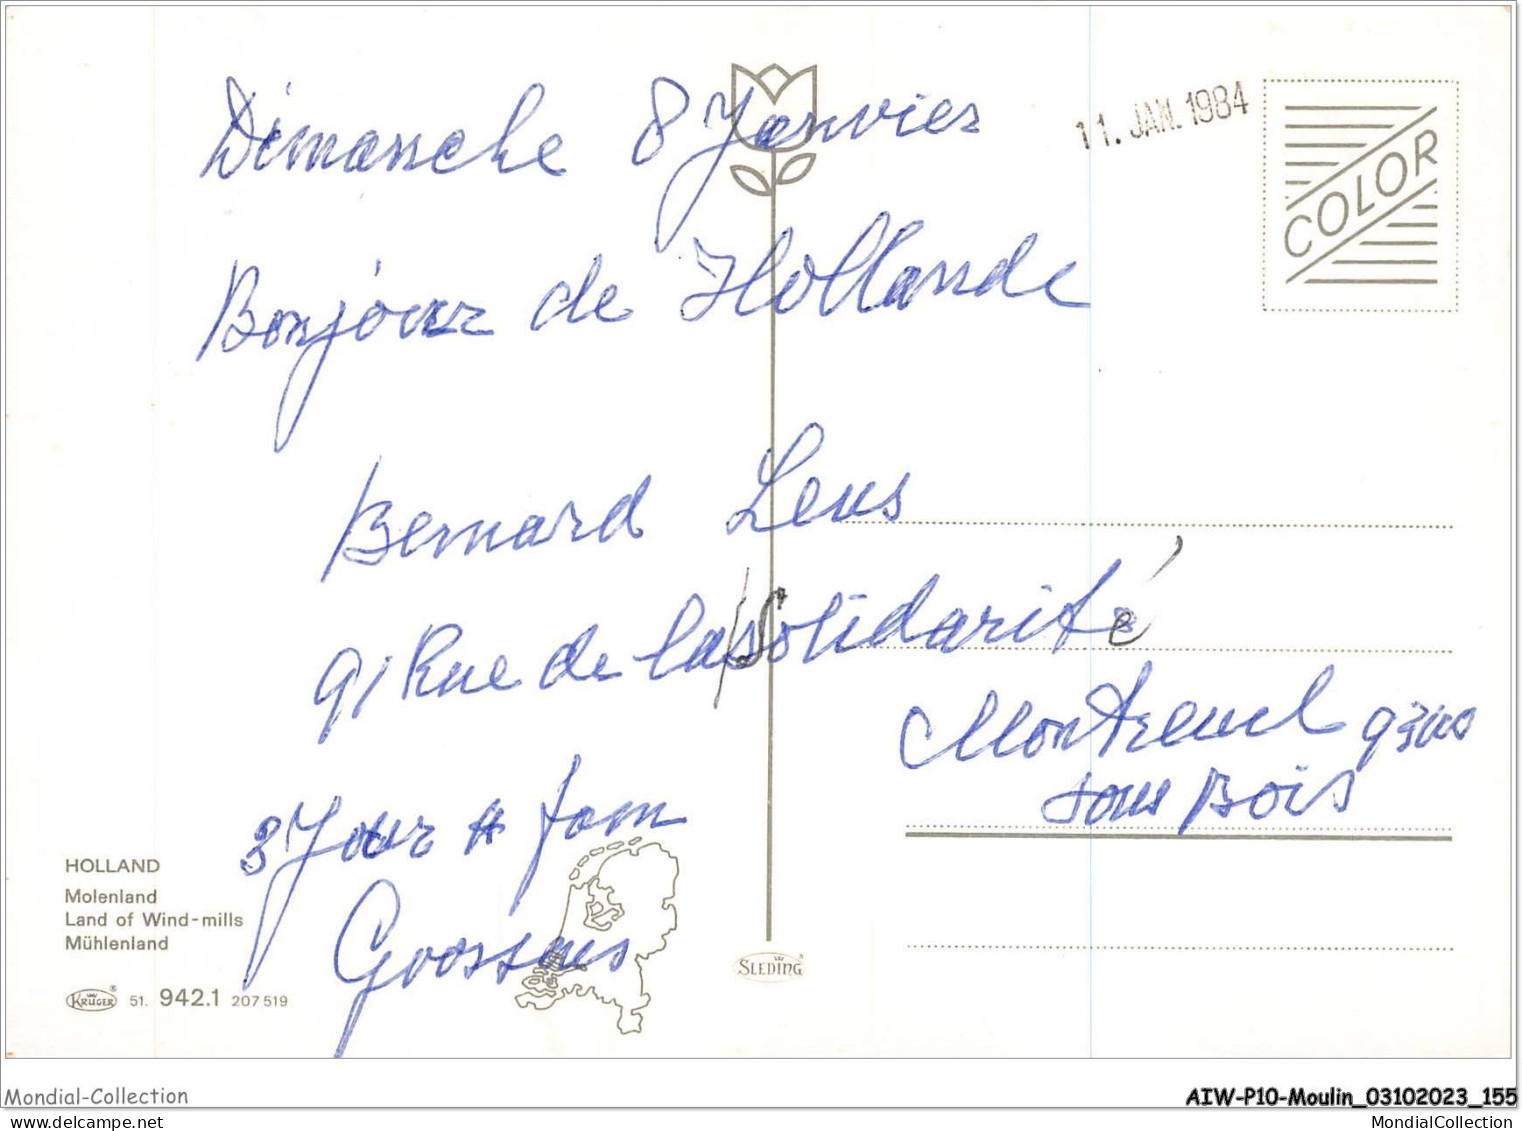 Dimansche 8 Janvier
11. JAN. 1984
COLOR
Bonjour de Hollande
Bernard Lens
91 Rue de la Solidarité
Montreuil 93100
sous Bois
3 Jour # fam
Goossens
HOLLAND
Molenland
Land of Wind-mills
Mühlenland
KRÜGER® 51. 942.1 207 519
SLEDING®
Mondial-Collection
AIW-P10-Moulin_03102023_155
MondialCollection